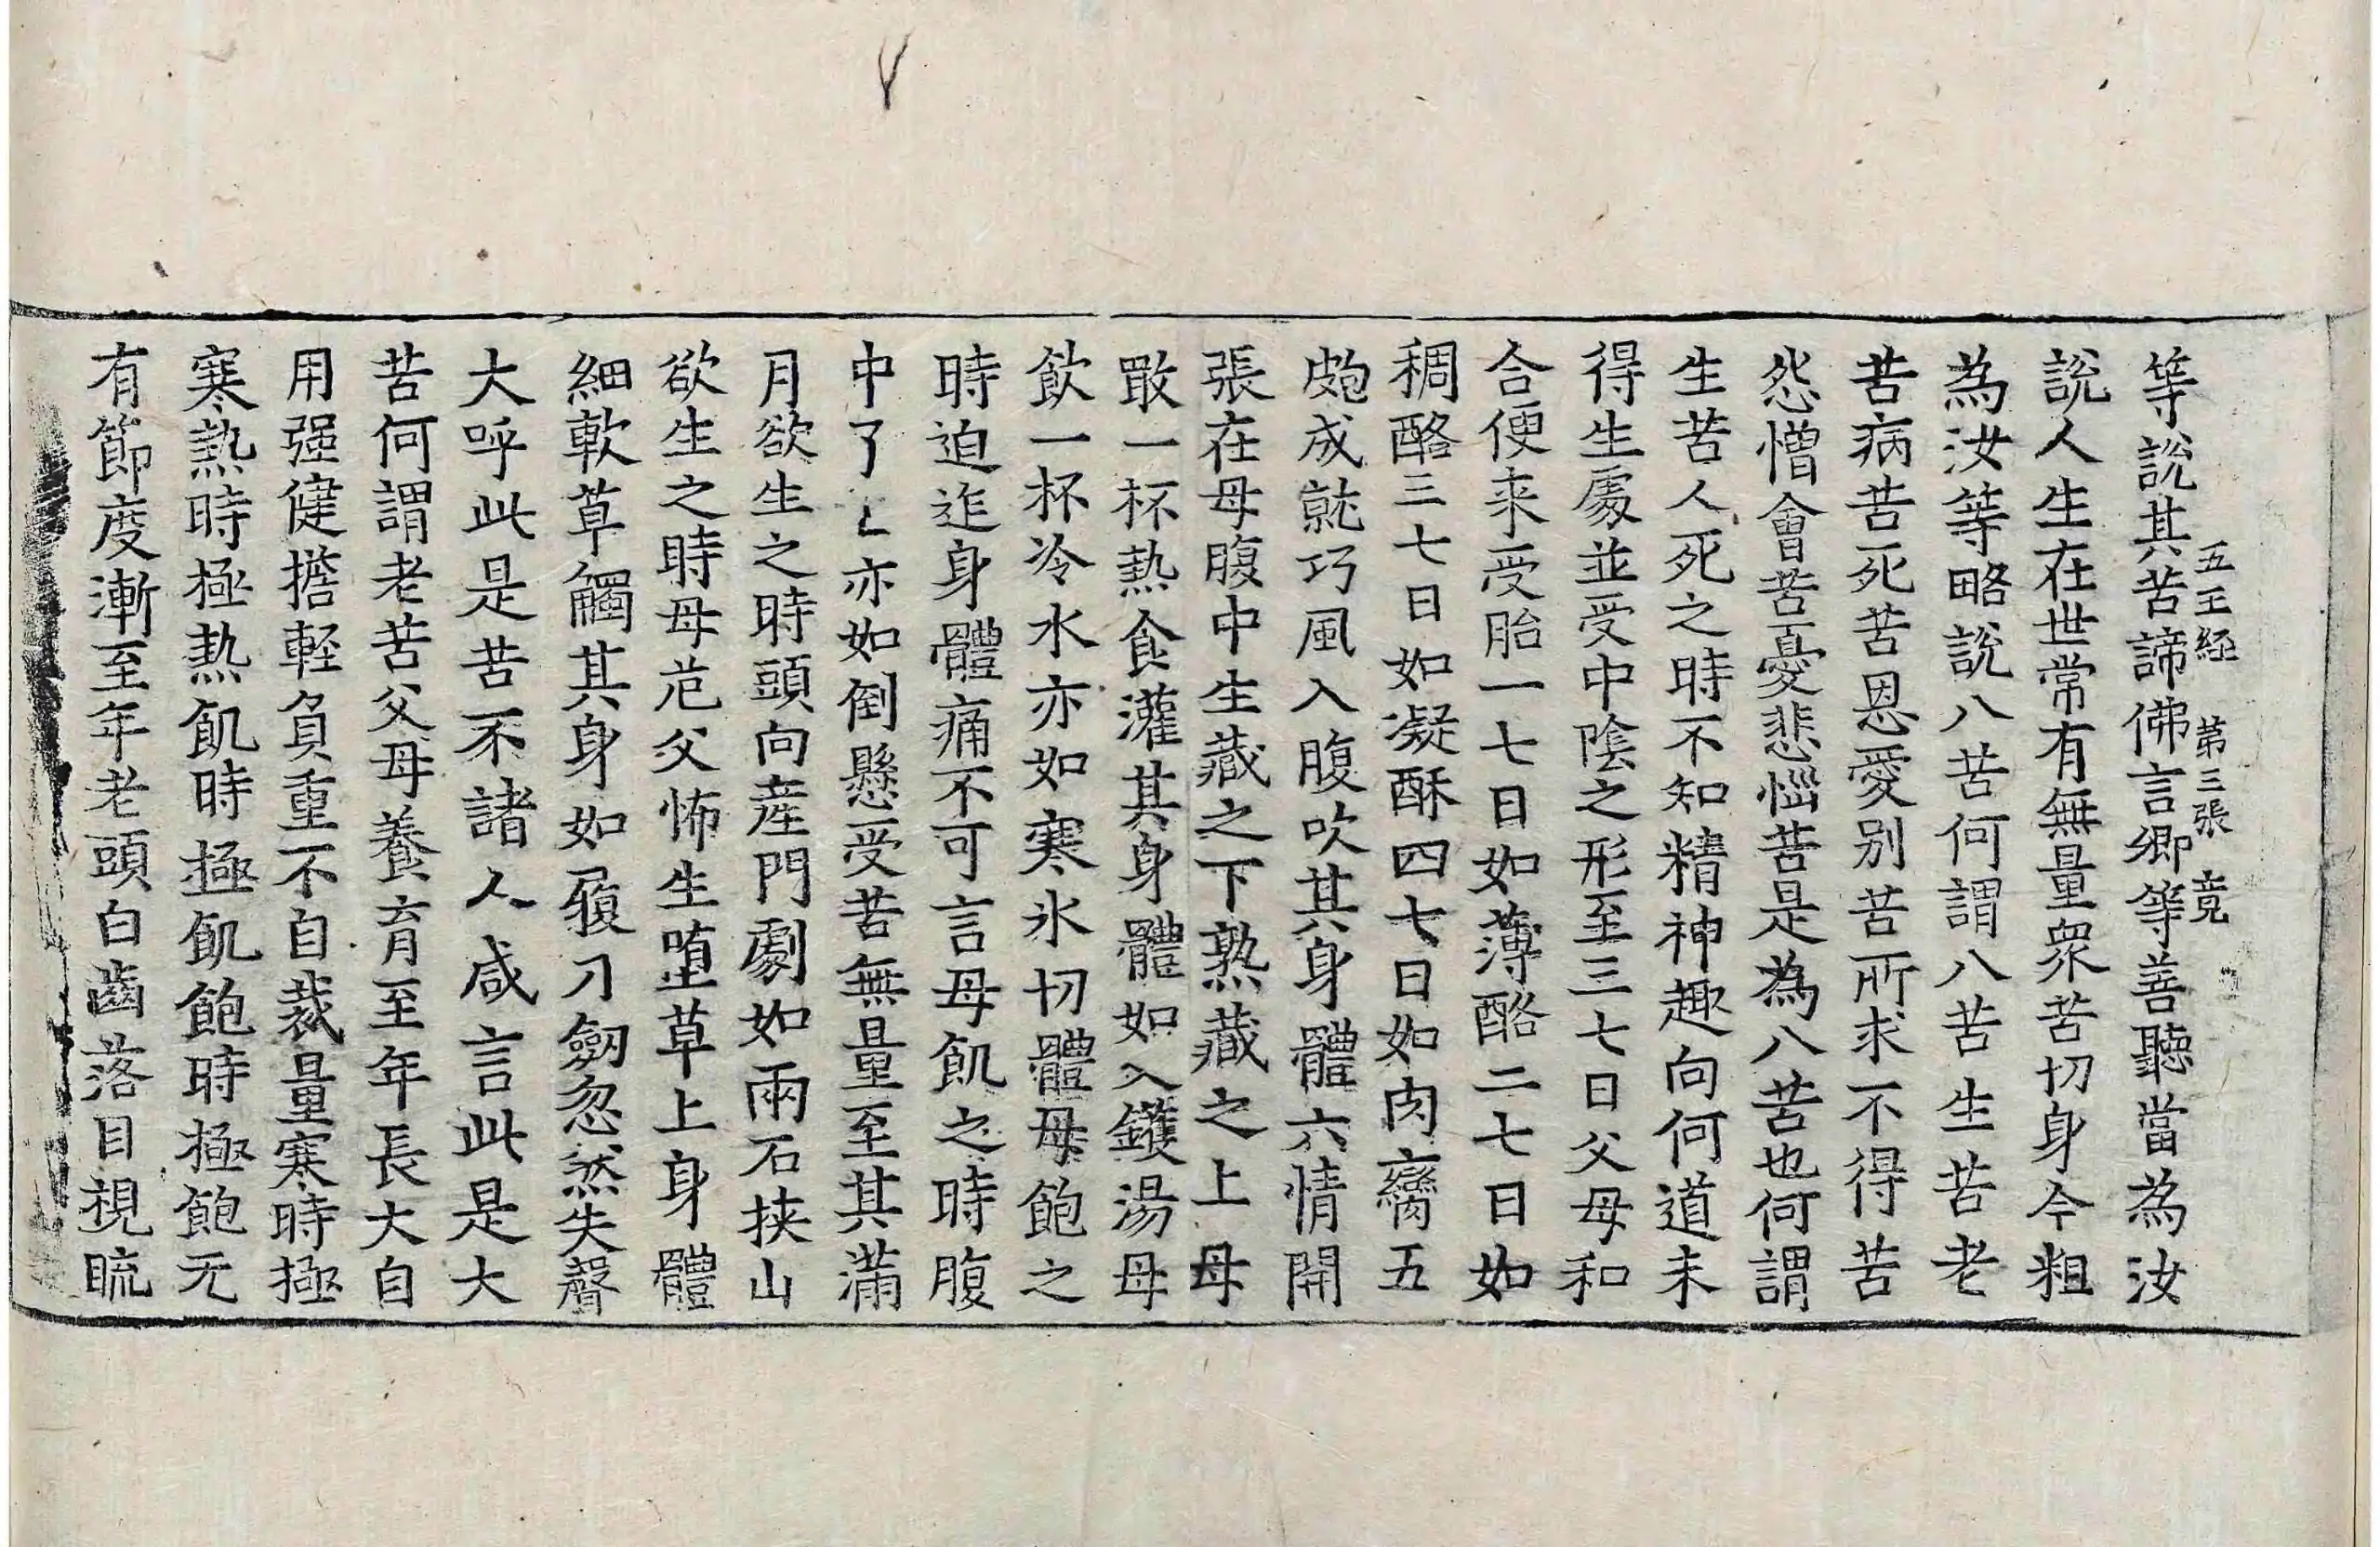 五王經 第三張 竟
等說其苦諦佛言卿等善聽當為汝
說人生在世常有無量衆苦切身今粗
為汝等略說八苦何謂八苦生苦老
苦病苦死苦恩愛別苦所求不得苦
怨憎會苦憂悲惱苦是為八苦也何謂
生苦人死之時不知精神趣向何道未
得生處並受中陰之形至三七日父母和
合便来受胎一七日如薄酪二七日如
稠酪三七日如凝酥四七日如肉臠五
皰成就巧風入腹吹其身體六情開
張在母腹中生藏之下熟藏之上母
噉一杯熱食灌其身體如入鑊湯母
飲一杯冷水亦如寒氷切體母飽之
時迫迮身體痛不可言母飢之時腹
中了〻亦如倒懸受苦無量至其滿
月欲生之時頭向産門劇如兩石挾山
欲生之時母危父怖生堕草上身體
細軟草觸其身如履刀劒忽然失聲
大呼此是苦不諸人咸言此是大
苦何謂老苦父母養育至年長大自
用强健擔輕負重不自裁量寒時極
寒熱時極熱飢時極飢飽時極飽无
有節度漸至年老頭白齒落目視𥆨